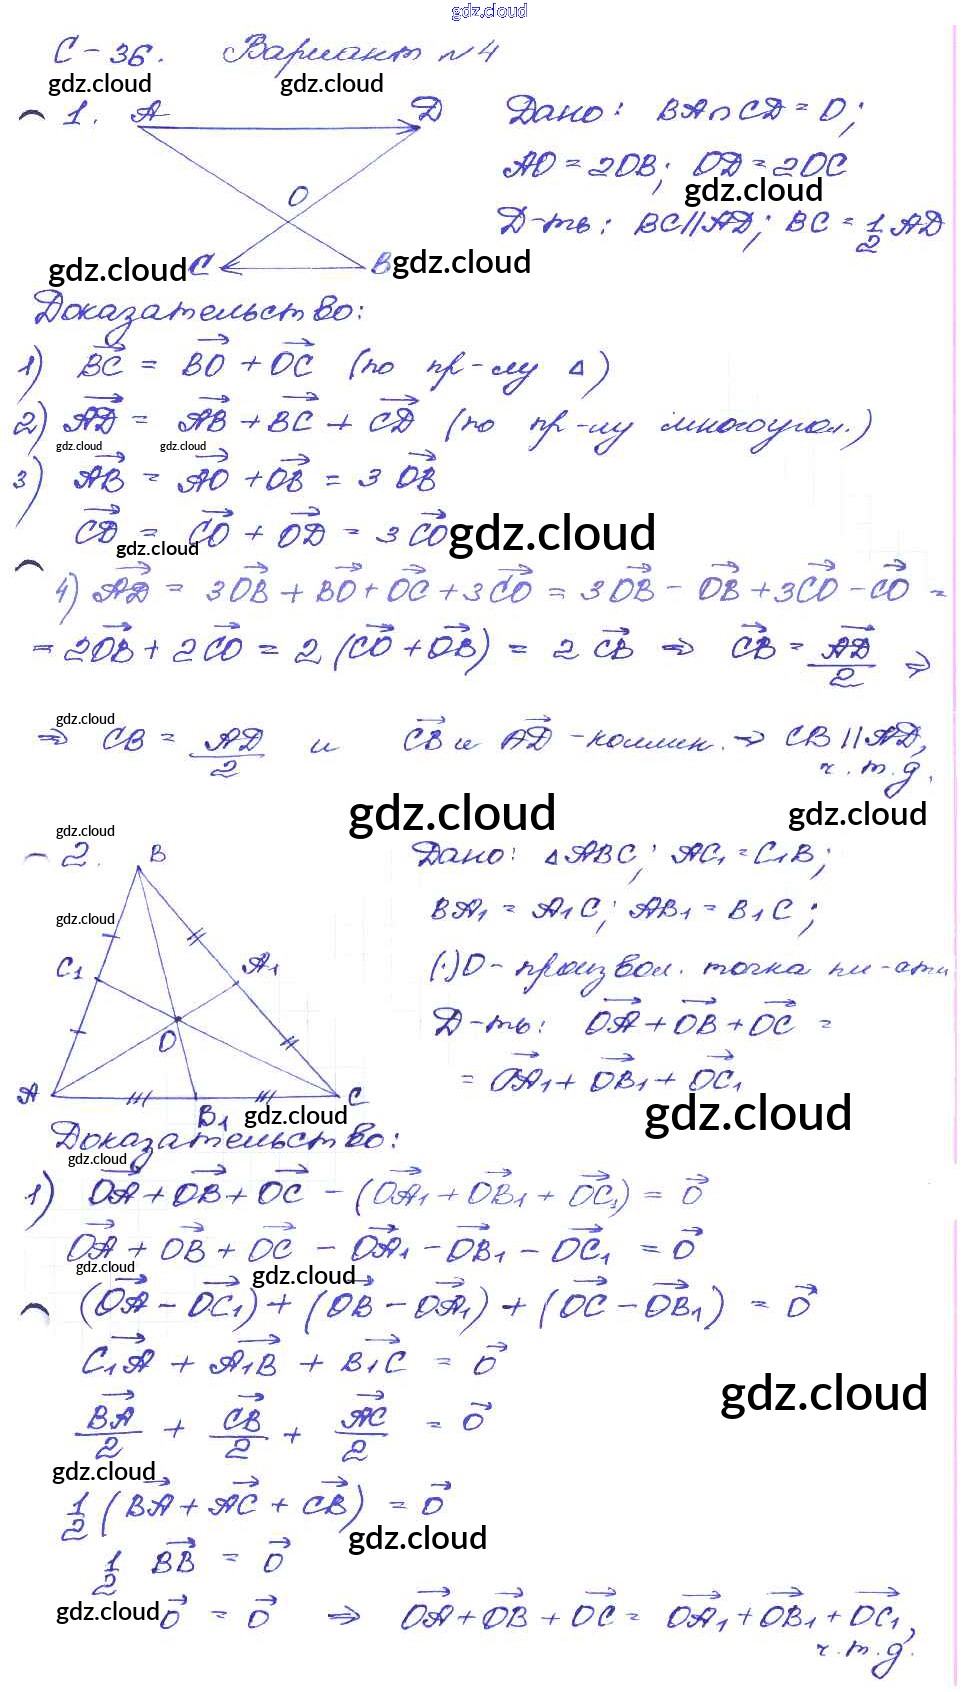 gdz.cloud
С-36. Вариант №4
gdz.cloud gdz.cloud
1. A D Дано: BA∩CD=O;
O AO=2OB; OD=2OC
gdz.cloud
C B Д-ть: BC||AD; BC=1/2 AD
gdz.cloud gdz.cloud
Доказательство:
1) BC→ = BO→ + OC→ (по пр-лу Δ)
2) AD→ = AB→ + BC→ + CD→ (по пр-лу многоугол.)
gdz.cloud gdz.cloud
3) AB→ = AO→ + OB→ = 3 OB→
CD→ = CO→ + OD→ = 3 CO→ gdz.cloud
gdz.cloud
4) AD→ = 3OB→ + BO→ + OC→ + 3CO→ = 3OB→ - OB→ + 3CO→ - CO→ =
= 2OB→ + 2CO→ = 2 (CO→ + OB→) = 2 CB→ ⇒ CB→ = AD→/2 ⇒
gdz.cloud
⇒ CB = AD/2 и CB→ и AD→ - коллин. ⇒ CB||AD,
ч.т.д.
gdz.cloud gdz.cloud
gdz.cloud
2. B Дано: ΔABC; AC1=C1B;
gdz.cloud BA1=A1C; AB1=B1C;
C1 A1 (·)O - произвол. точка пл-сти
O Д-ть: OA→ + OB→ + OC→ =
= OA1→ + OB1→ + OC1→
A B1 C
gdz.cloud gdz.cloud
Доказательство:
gdz.cloud
1) OA→ + OB→ + OC→ - (OA1→ + OB1→ + OC1→) = 0→
OA→ + OB→ + OC→ - OA1→ - OB1→ - OC1→ = 0→
gdz.cloud gdz.cloud
(OA→ - OC1→) + (OB→ - OA1→) + (OC→ - OB1→) = 0→
C1A→ + A1B→ + B1C→ = 0→
gdz.cloud
BA→/2 + CB→/2 + AC→/2 = 0→
gdz.cloud
1/2 (BA→ + AC→ + CB→) = 0→
gdz.cloud
1/2 BB→ = 0→
gdz.cloud
0→ = 0→ ⇒ OA→ + OB→ + OC→ = OA1→ + OB1→ + OC1→,
ч.т.д.